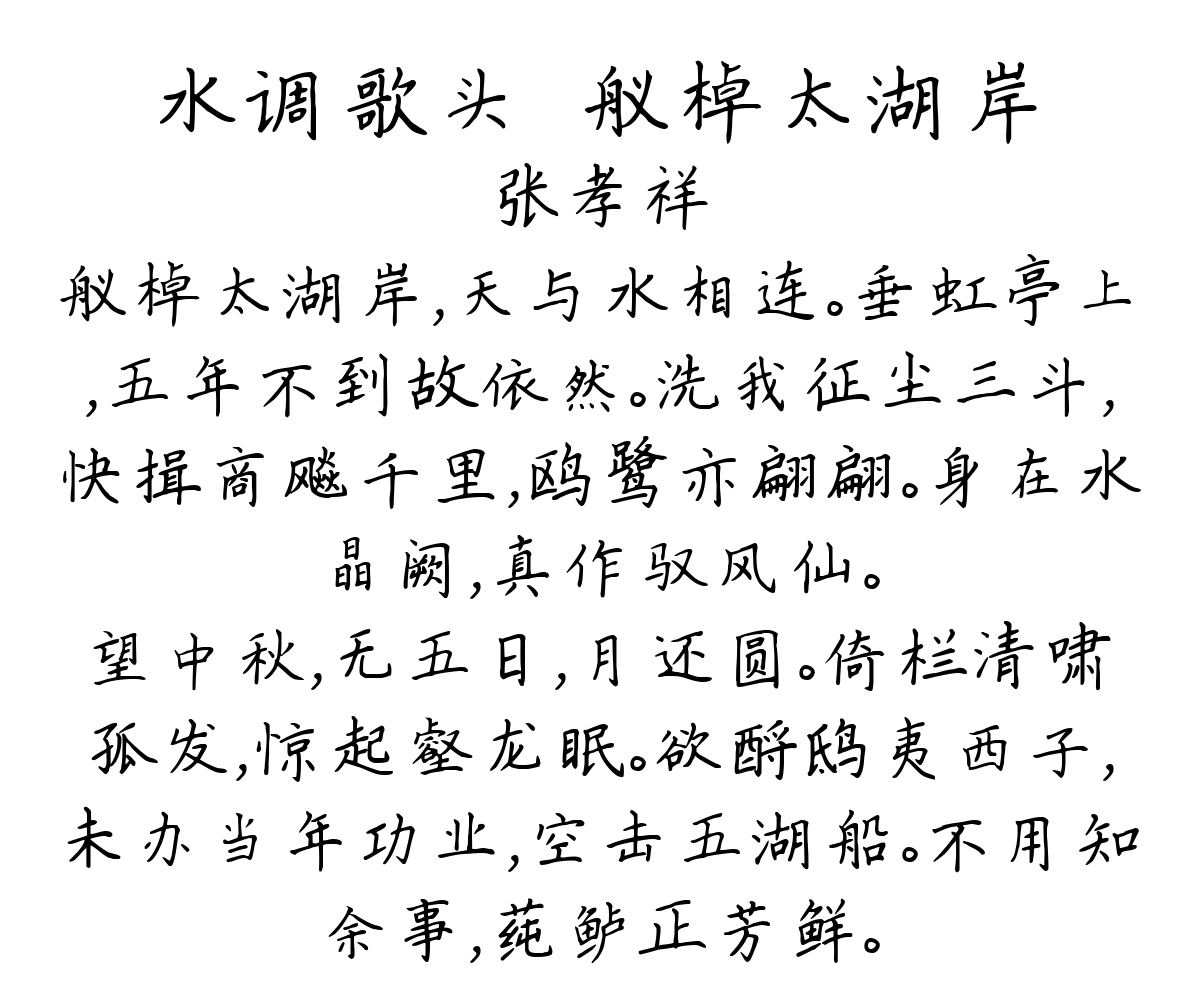 水调歌头 舣棹太湖岸
张孝祥
舣棹太湖岸,天与水相连。垂虹亭上
,五年不到故依然。洗我征尘三斗,
快揖商飚千里,鸥鹭亦翩翩。身在水
晶阙,真作驭风仙。
望中秋,无五日,月还圆。倚栏清啸
孤发,惊起壑龙眠。欲酹鸱夷西子,
未办当年功业,空击五湖船。不用知
余事,莼鲈正芳鲜。